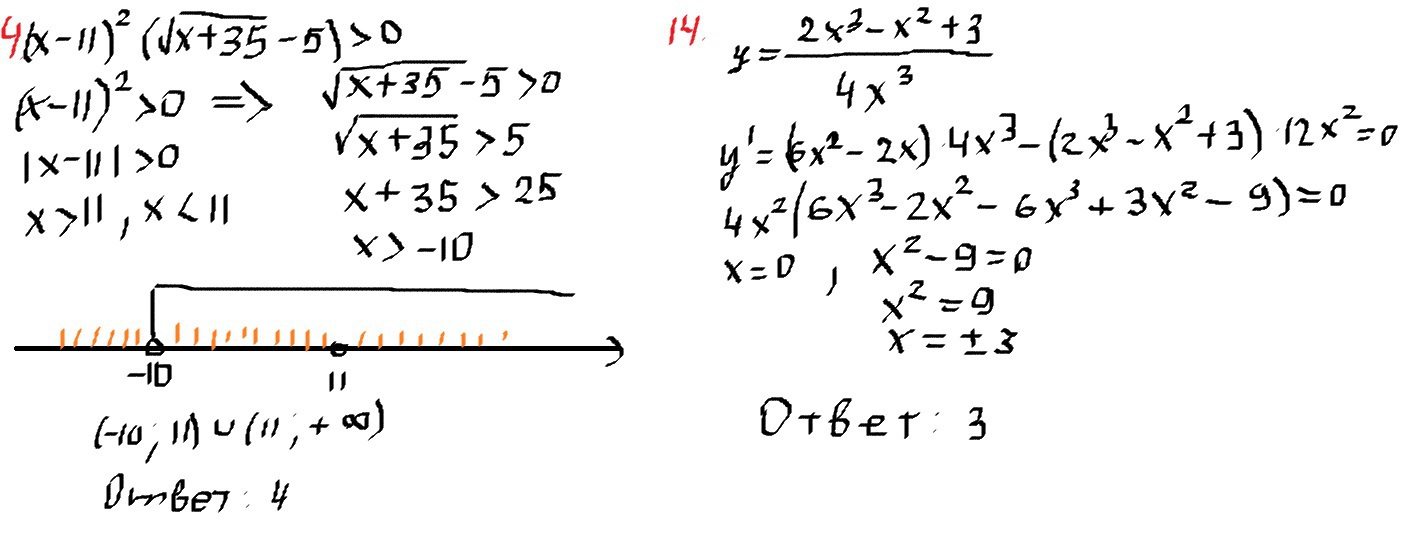 4 (x-11)² (√x+35 - 5) > 0
(x-11)² > 0 => √x+35 - 5 > 0
|x-11| > 0 √x+35 > 5
x > 11 , x < 11 x + 35 > 25
x > -10
-10 11
(-10; 11) ∪ (11; +∞)
Ответ: 4
14. y = (2x³ - x² + 3) / 4x³
y' = (6x² - 2x) · 4x³ - (2x³ - x² + 3) · 12x² = 0
4x² (6x³ - 2x² - 6x³ + 3x² - 9) = 0
x = 0 , x² - 9 = 0
x² = 9
x = ±3
Ответ: 3